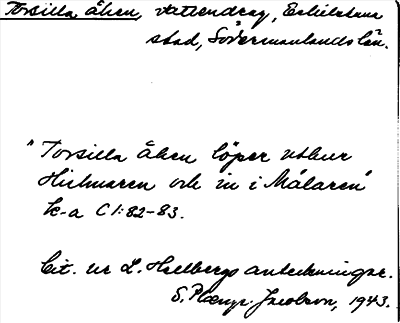 Torsilla åken, vattendrag, Eskilstuna
stad, Södermanlands län.
"Torsilla åken löper utur
Hielmaren och in i Mälaren"
k-a C 1:82-83.
Cit. ur L. Hallbergs anteckningar.
S. Plœngr. Jacobson, 1943.